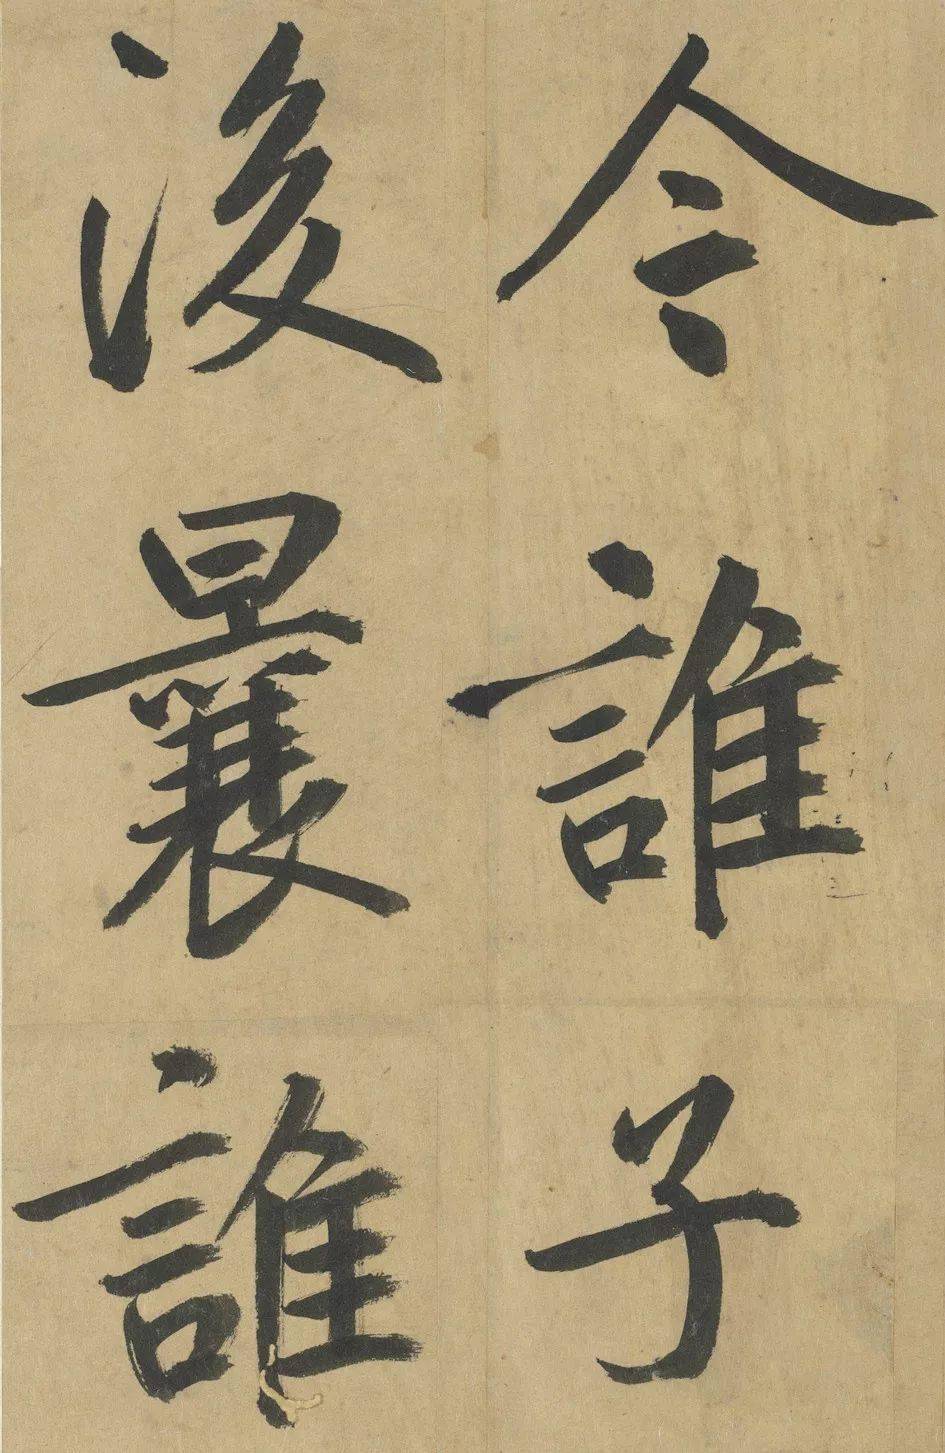 今誰子
後曩誰